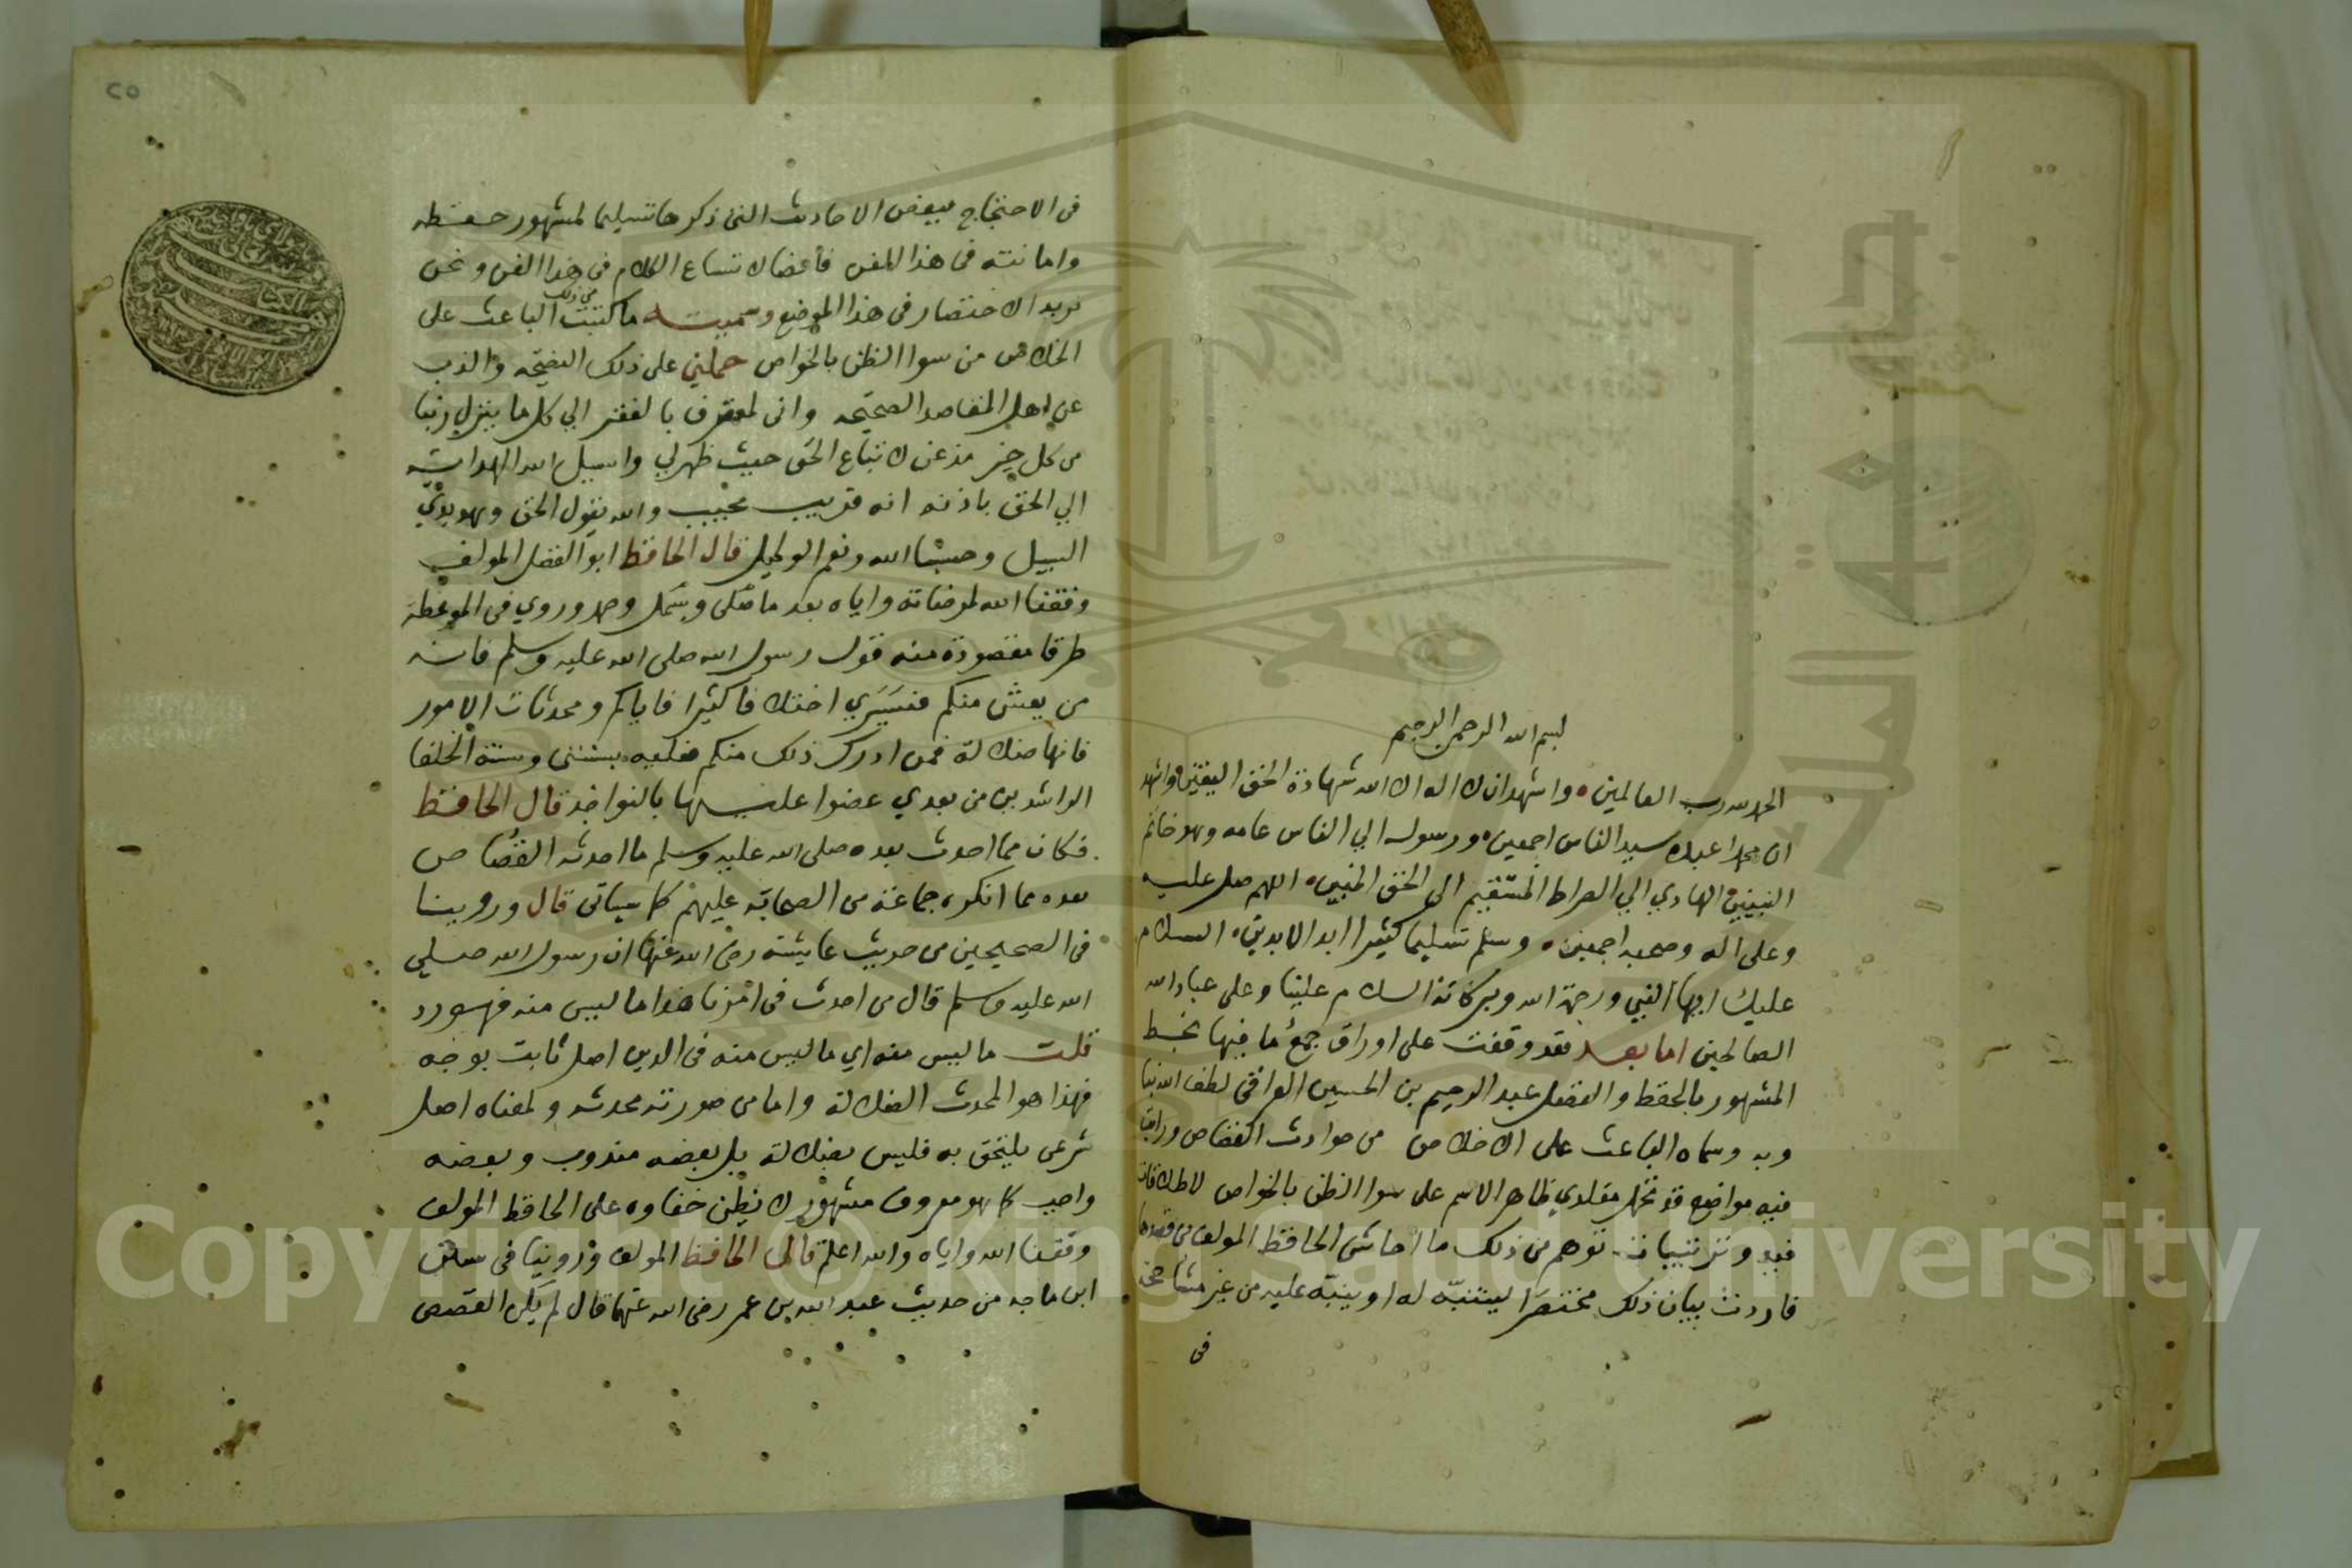 بسم الله الرحمن الرحيم
الحمد لله رب العالمين واشهد ان لا اله الا الله شهادة الحق اليقين واشهد
ان محمدا عبده سيد الناس اجمعين ورسوله الي الناس عامه وهو خاتم
النبيين الهادي الي الصراط المستقيم الي الحق المبين اللهم صل عليه
وعلى اله وصحبه اجمعين وسلم تسليما كثيرا ابد الابدين السلام
عليك ايها النبي ورحمة الله وبركاته السلام علينا وعلى عباد الله
الصالحين اما بعد فقد وقفت على اوراق جمع ما فيها بخط
المشهور بالحفظ والفضل عبد الرحيم بن الحسين العراقى لطف الله بنا
وبه وسماه الباعث على الاخلاص من حوادث القصاص ورايت
فيه مواضع قد تخل مقلدي ظاهر الاسم على سوا الظن بالخواص
توهم من ذلك ما احاشى الحافظ المولف من قصدها
فاردت بيان ذلك مختصرا ليتنبه له او ينبه عليه من غير مشاححة
فى
٢٥
فى الاحتجاج ببعض الاحاديث التى ذكرها تسليما لمشهور حفظه
وامانته فى هذا الفن فأعضا لاتساع الكلام فى هذا الفن ونحن
نريد الاختصار فى هذا الموضع وسميت ما كتبت من ذلك الباعث على
الخلاص من سوا الظن بالخواص حملني على ذلك النصيحه والذب
عن اهل المقاصد الصحيحه وانى لمعترف بالفقر الي كل ما ينزل ربنا
من كل خير مذعن لاتباع الحق حيث ظهر لي واسيل الله الهداية
الي الحق باذنه انه قريب مجيب والله يقول الحق وهو يهدي
السبيل وحسبنا الله ونعم الوكيل قال الحافظ ابو الفضل المولف
وفقنا الله لمرضاته واياه بعد ما صلى وبسمل وحمد وروي فى الموعظة
طرقا مقصودة منه قول رسول الله صلى الله عليه وسلم فانه
من يعش منكم فسيري اختلافا كثيرا فاياكم ومحدثات الامور
فانها ضلالة فمن ادرك ذلك منكم فعليه بسنتى وسنة الخلفا
الراشدين من بعدي عضوا عليها بالنواجذ قال الحافظ
فكان مما احدث بعده صلى الله عليه وسلم ما احدثه القصاص
بعده مما انكره جماعة من الصحابة عليهم كما سياتى قال وروينا
فى الصحيحين من حديث عايشة رضى الله عنها ان رسول الله صلى
الله عليه وسلم قال من احدث فى امرنا هذا ما ليس منه فهو رد
قلت ما ليس منه اي ما ليس منه فى الدين اصل ثابت بوجه
فهذا هو المحدث الضلالة واما من صورته محدثه ولمعناه اصل
شرعى يلتحق به فليس بضلالة بل بعضه مندوب وبعضه
واجب كما هو معروف مشهور لا يظن خفاوه على الحافظ المولف
وفقنا الله واياه والله اعلم قال الحافظ المولف وروينا فى سنن
ابن ماجه من حديث عبد الله بن عمر رضى الله عنهما قال لم يكن القصص
Copyright © King Saud University